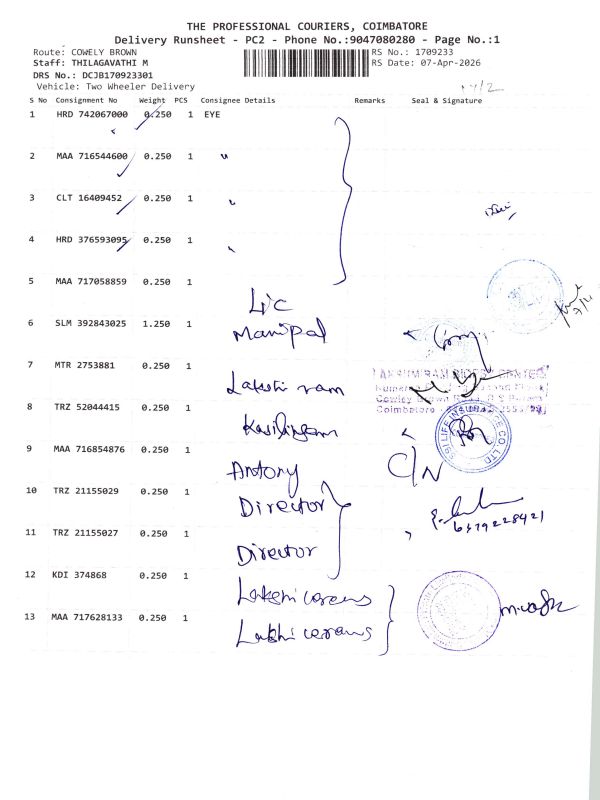 THE PROFESSIONAL COURIERS, COIMBATORE
Delivery Runsheet - PC2 - Phone No.:9047080280 - Page No.:1
Route: COWELY BROWN
RS No.: 1709233
Staff: THILAGAVATHI M
RS Date: 07-Apr-2026
DRS No.: DCJB170923301
Vehicle: Two Wheeler Delivery
S No Consignment No Weight PCS Consignee Details Remarks Seal & Signature
1 HRD 742067000 0.250 1 EYE
2 MAA 716544600 0.250 1 "
3 CLT 16409452 0.250 1 "
4 HRD 376593095 0.250 1 "
5 MAA 717058859 0.250 1 LIC
6 SLM 392843025 1.250 1 Manipal
7 MTR 2753881 0.250 1 Lakshi ram
8 TRZ 52044415 0.250 1 Kasilingam
9 MAA 716854876 0.250 1 Antony C/N
10 TRZ 21155029 0.250 1 Director
6379228421
11 TRZ 21155027 0.250 1 Director
12 KDI 374868 0.250 1 Lakshi cerams
13 MAA 717628133 0.250 1 Lakhi cerams
SBI LIFE INSURANCE CO. LTD